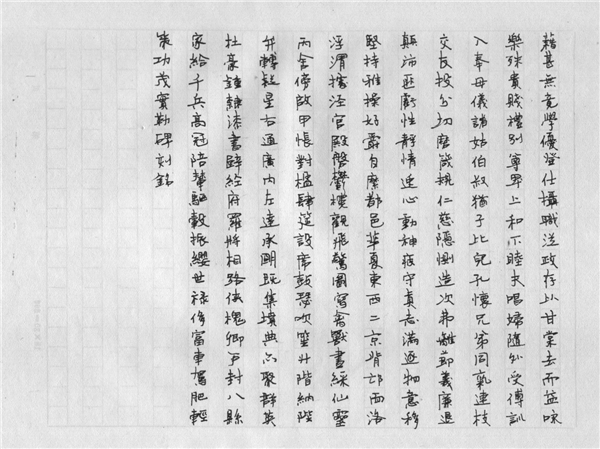 藉甚無竟學優登仕攝職從政存以甘棠去而益詠
樂殊貴賤禮別尊卑上和下睦夫唱婦隨外受傅訓
入奉母儀諸姑伯叔猶子比兒孔懷兄弟同氣連枝
交友投分切磨箴規仁慈隱惻造次弗離節義廉退
顛沛匪虧性靜情逸心動神疲守真志滿逐物意移
堅持雅操好爵自縻都邑華夏東西二京背邙面洛
浮渭據涇宮殿盤鬱樓觀飛驚圖寫禽獸畫綵仙靈
丙舍傍啟甲帳對楹肆筵設席鼓瑟吹笙升階納陛
弁轉疑星右通廣內左達承明既集墳典亦聚群英
杜稾鍾隸漆書壁經府羅將相路俠槐卿戶封八縣
家給千兵高冠陪輦驅轂振纓世祿侈富車駕肥輕
策功茂實勒碑刻銘